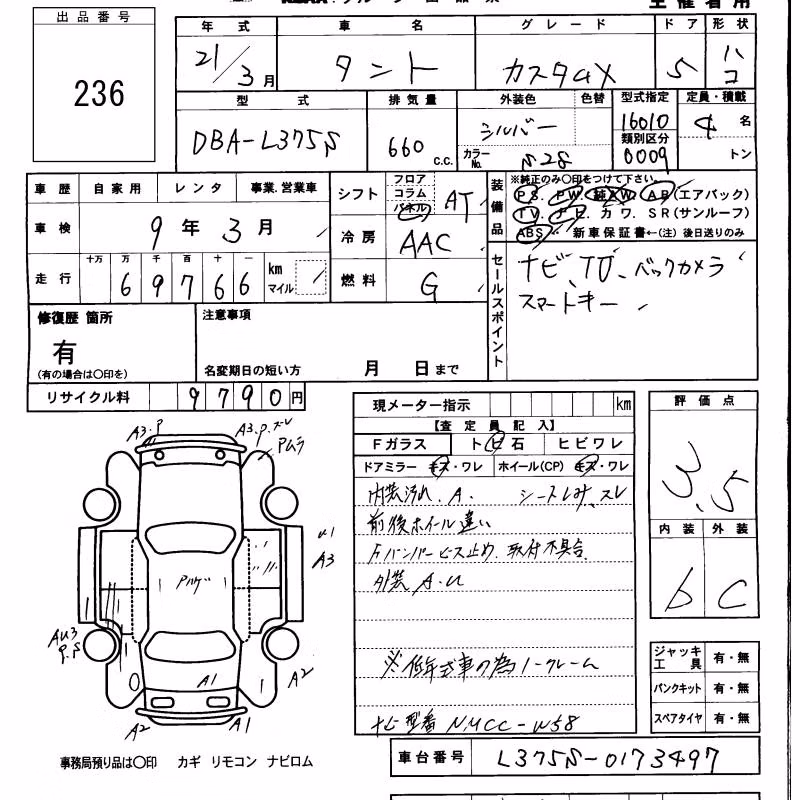 出品番号
236
年式 車名 グレード ドア 形状
21/3月 タント カスタムX 5 ハコ
型式 排気量 外装色 色替 型式指定 定員・積載
DBA-L375S 660 C.C. シルバー 16010 4名
類別区分
カラーNo. S28 0009 トン
車歴 自家用 レンタ 事業.営業車
シフト フロア コラム パネル AT
装備品 ※純正のみ○印をつけて下さい。
PS. PW. 純AW. AB(エアバック)
TV. ナビ. カワ. SR(サンルーフ)
ABS 新車保証書←(注) 後日送りのみ
車検 9年3月
冷房 AAC
走行 十万 万 千 百 十 一 km マイル
69766
燃料 G
セールスポイント
ナビ、TV、バックカメラ
スマートキー
修復歴 箇所
有
(有の場合は○印を)
注意事項
名変期日の短い方 月 日まで
リサイクル料 9790円
現メーター指示 km
【査定員記入】
Fガラス トビ石 ヒビワレ
ドアミラー キズ・ワレ ホイール(CP) キズ・ワレ
内装汚れ.A. シートしみ、スレ
前後ホイール違い
Fバンパービス止め.取付不具合
外装 A.U
※低年式車の為ノークレーム
ナビ型番 NMCC-W58
評価点
3.5
内装 外装
b C
ジャッキ工具 有・無
パンクキット 有・無
スペアタイヤ 有・無
車台番号 L375S-0173497
A3.P
A3.P.スレ
Pムラ
U1
A3
Pハゲ
AU3
P.S
A2
A1
A2
A1
事務局預り品は○印 カギ リモコン ナビロム